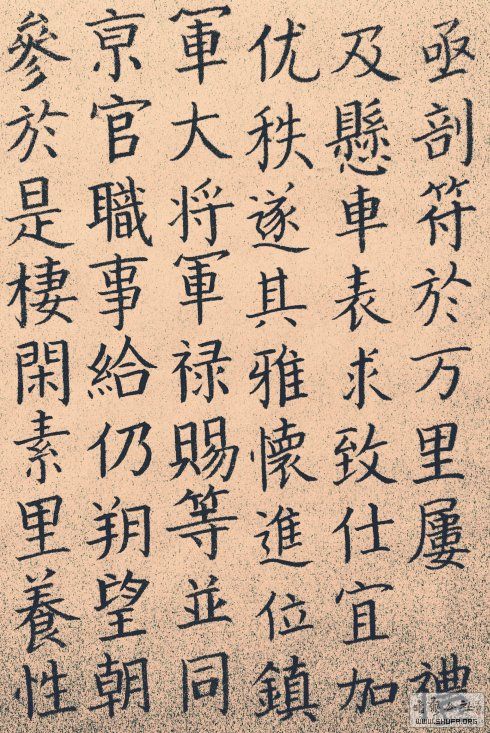 亟剖符於万里屢禮
及懸車表求致仕宜加
优秩遂其雅懷進位鎮
軍大将軍禄賜等並同
亰官職事給仍朔望朝
參於是棲閑素里養性
WWW.SHUFA.ORG